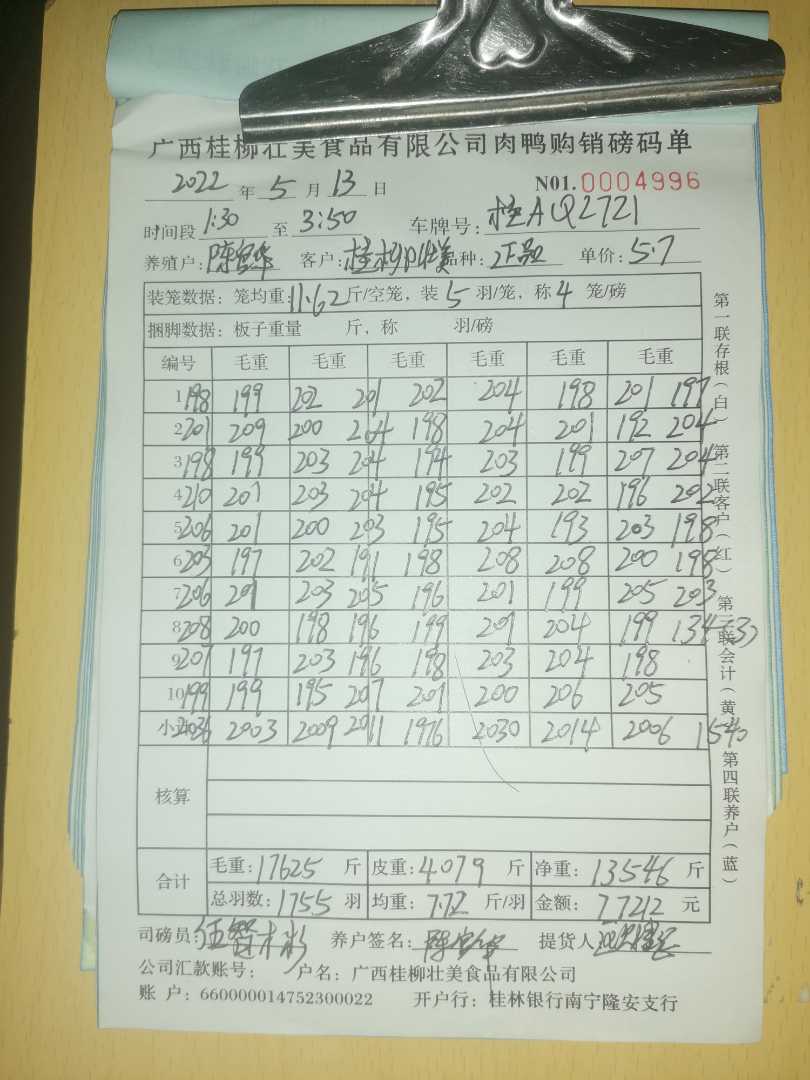 广西桂柳壮美食品有限公司肉鸭购销磅码单
2022 年 5 月 13 日 N01.0004996
时间段 1:30 至 3:50 车牌号: 桂AQ2721
养殖户: 陈 客户: 桂柳壮美 品种: 正品 单价: 5.7
装笼数据: 笼均重: 11.62 斤/空笼, 装 5 羽/笼, 称 4 笼/磅
捆脚数据: 板子重量 斤, 称 羽/磅
编号 毛重 毛重 毛重 毛重 毛重 毛重
1 198 199 202 201 202 204 198 201 197
2 201 209 200 204 198 204 201 192 204
3 198 199 203 204 194 203 199 207 204
4 210 201 203 204 195 202 202 196 202
5 206 201 200 203 195 204 193 203 198
6 203 197 202 191 198 208 208 200 198
7 206 201 203 205 196 201 199 205 203
8 208 200 198 196 199 201 204 199 134
9 207 197 203 196 198 203 204 198
10 199 199 195 207 201 200 206 205
小 2036 2003 2009 2011 1976 2030 2014 2006 1540
核算
合计 毛重: 17625 斤 皮重: 4079 斤 净重: 13546 斤
总羽数: 1755 羽 均重: 7.72 斤/羽 金额: 77212 元
司磅员: 养户签名: 陈 提货人:
公司汇款账号: 户名: 广西桂柳壮美食品有限公司
账 户: 660000014752300022 开户行: 桂林银行南宁隆安支行
第一联存根(白) 第二联客户(红) 第三联会计(黄) 第四联养户(蓝)